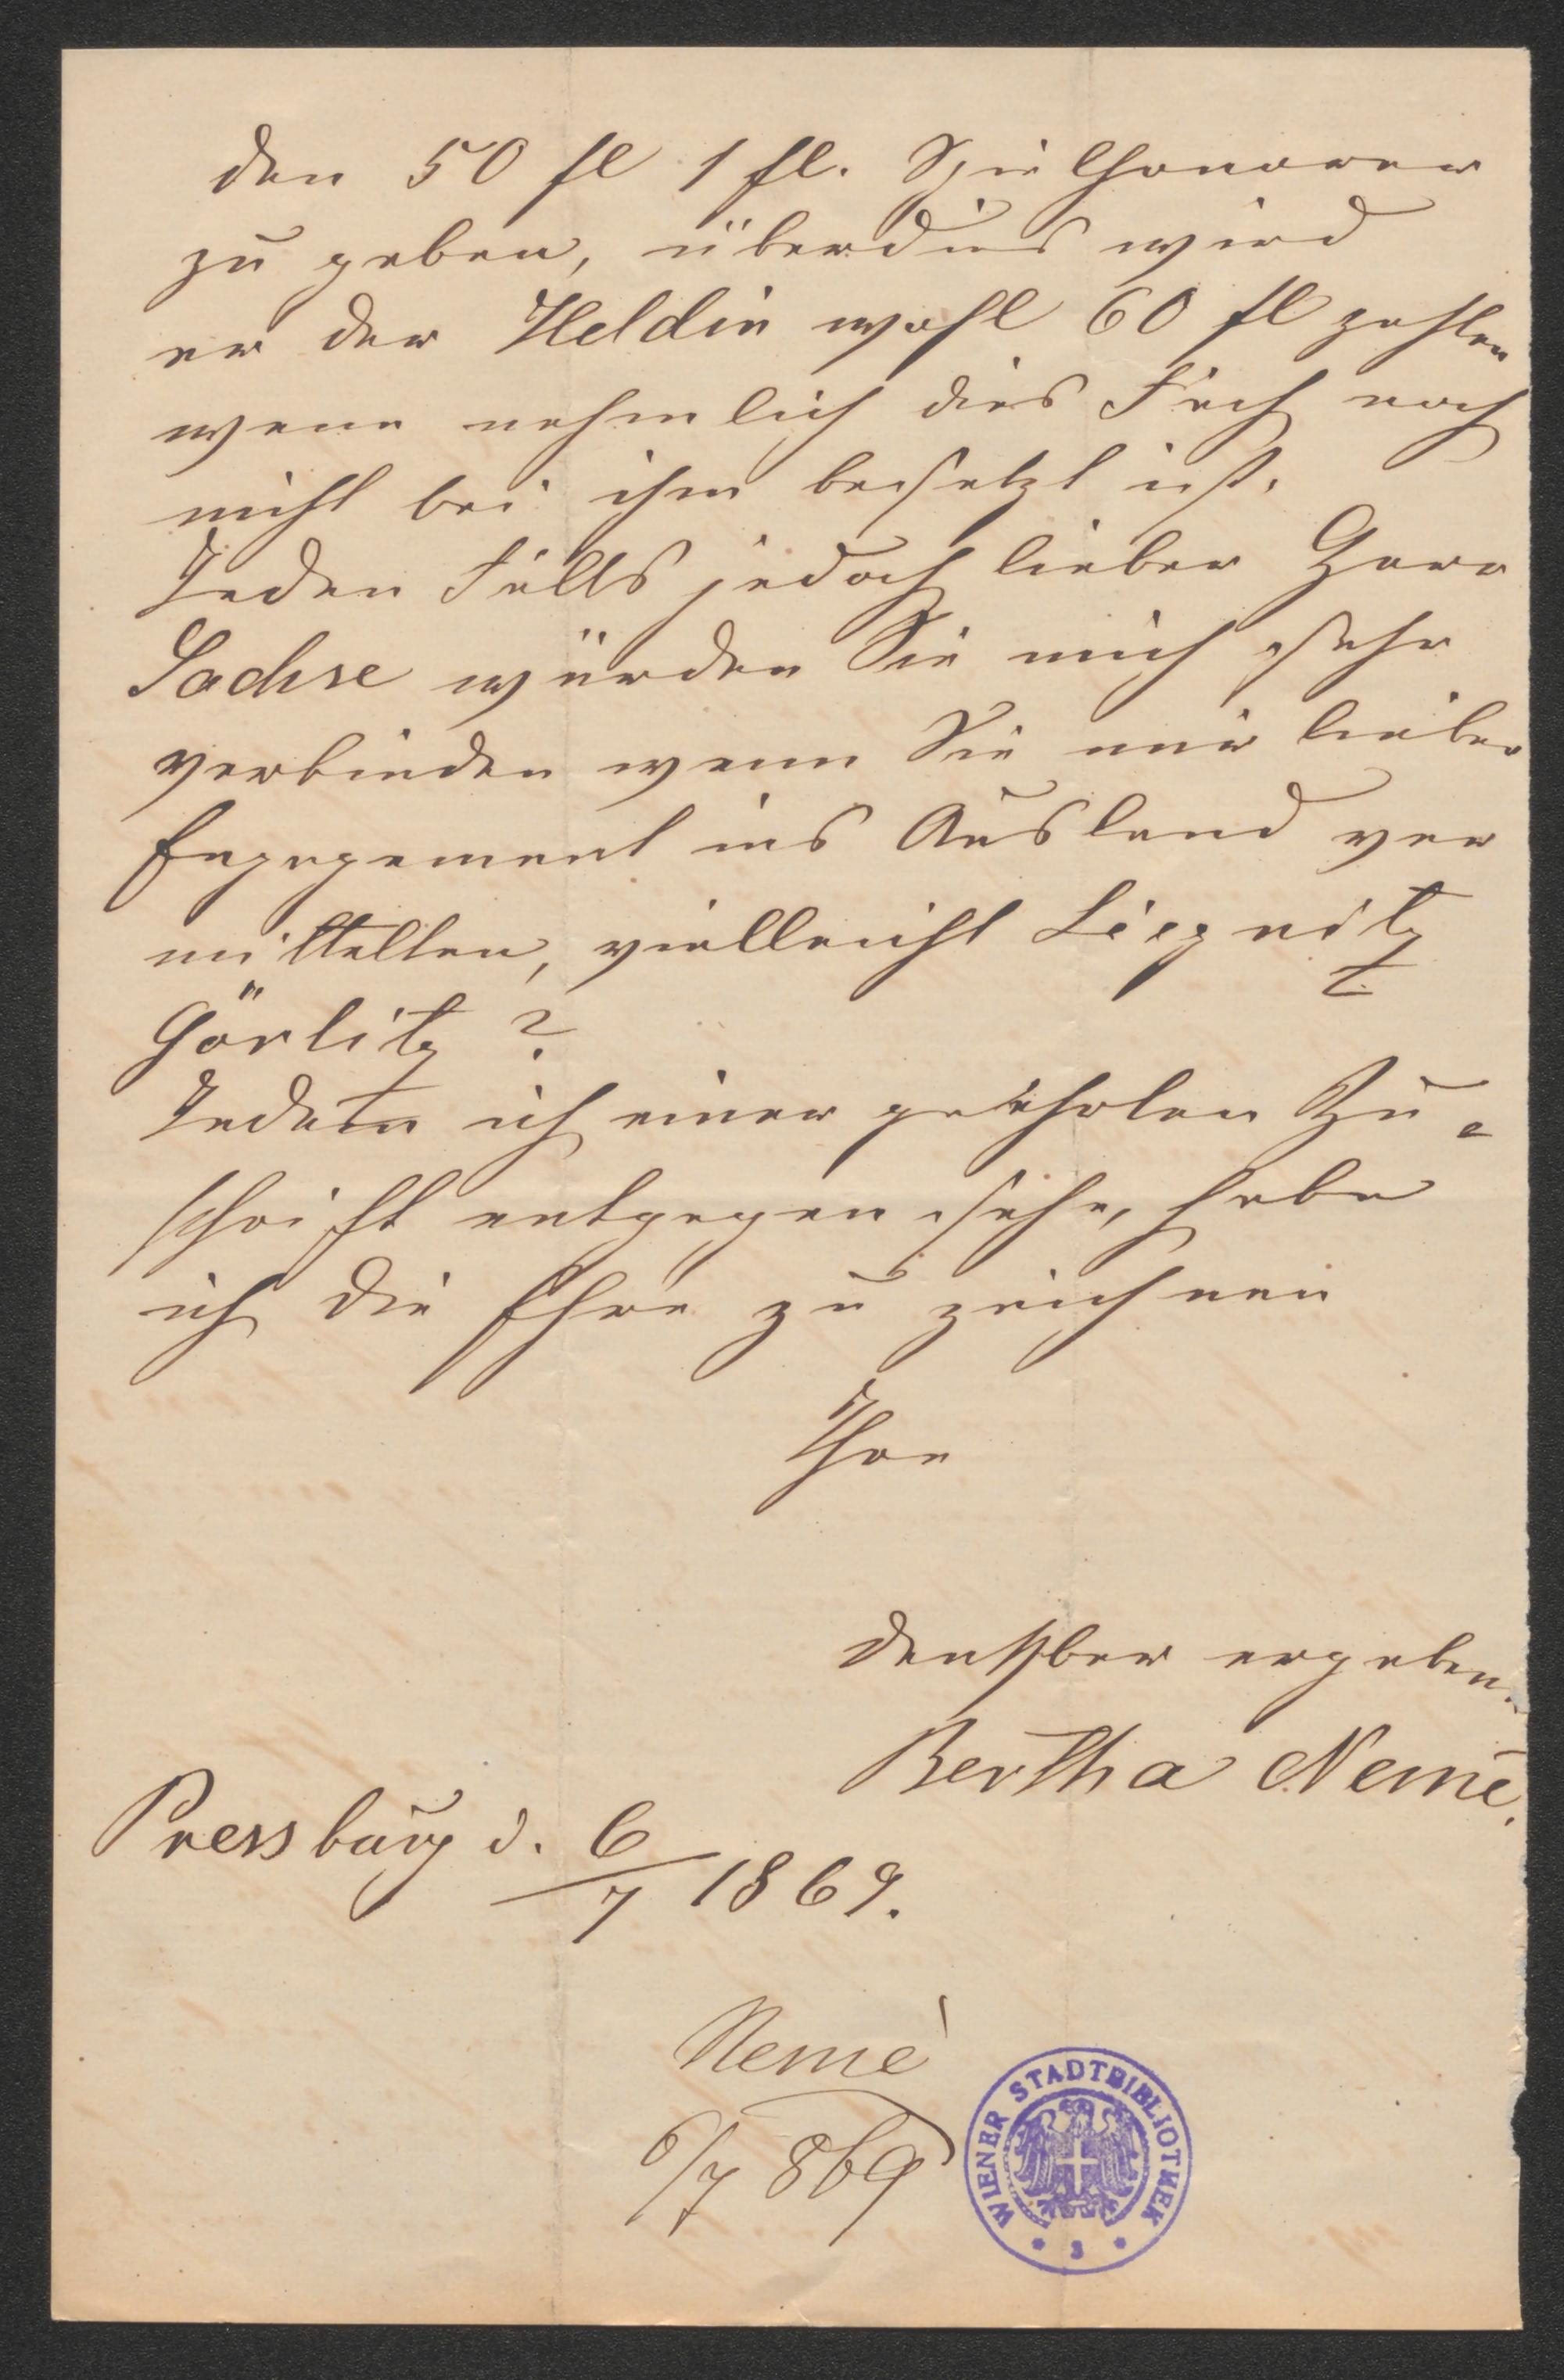 den 50 fl 1 fl. Spielhonorar
zu geben, überdies wird
er der Heldin wohl 60 fl zahlen
wenn nehmlich dies Fach noch
nicht bei ihm besetzt ist.
Jeden Falls jedoch lieber Herr
Sachse würden Sie mich sehr
verbinden wenn Sie mir lieber
Engagement ins Ausland ver
mittelten, vielleicht Liegnitz
Görlitz?
Indem ich einer Zu=
schrift entgegen sehe, habe
ich die Ehre zu zeichnen
Ihre
dankbar ergeben.
Bertha Nemé.
Pressburg d. 6/7 1869.
Nemè
6/7 869
WIENER STADTBIBLIOTHEK
* 3 *